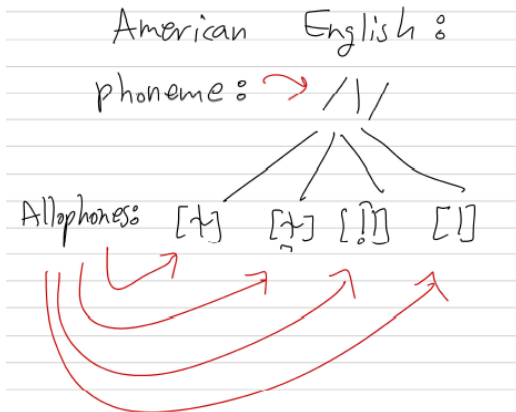 American English:
phoneme: /l/
Allophones: [ɫ] [ɫ̪] [l̥] [l]